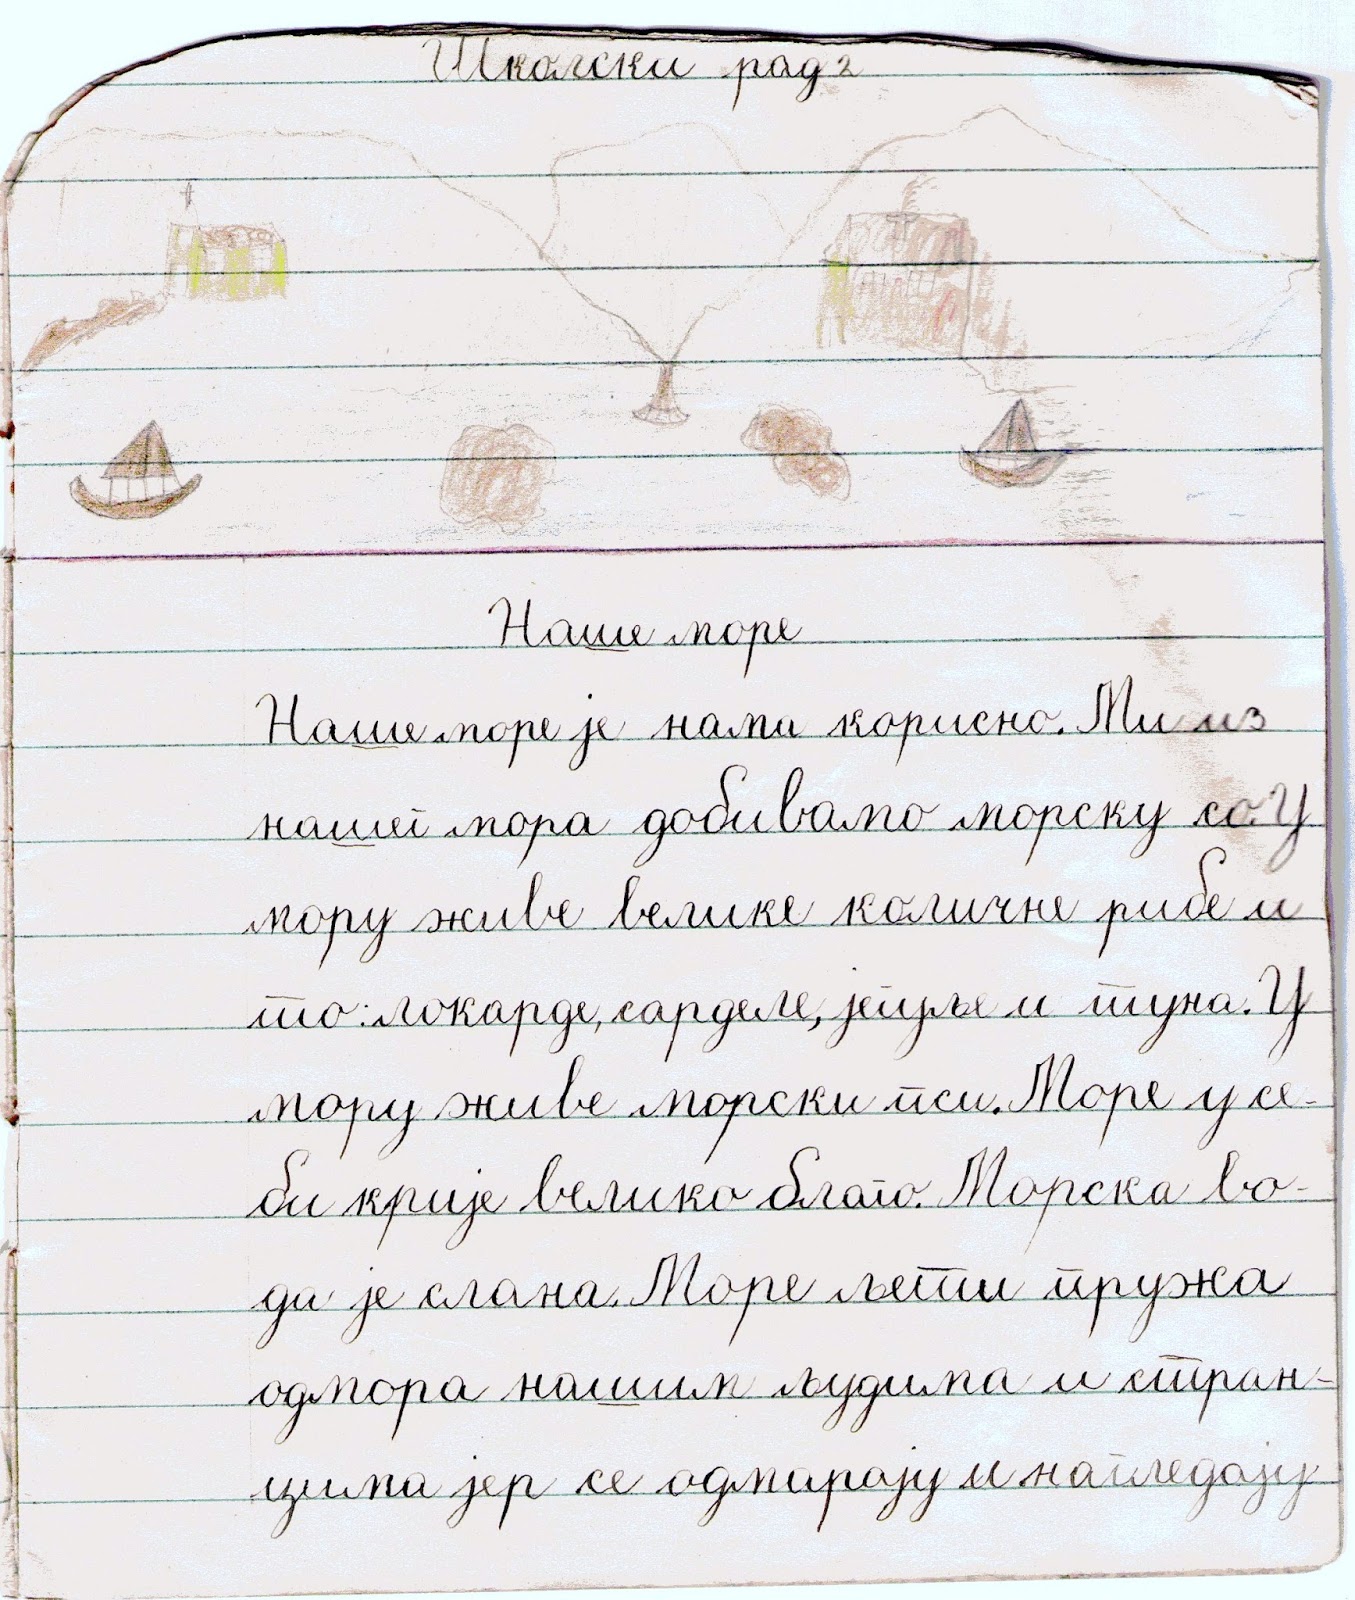 Школски рад 2
Наше море
Наше море је нама корисно. Ми из
нашег мора добивамо морску со. У
мору живе велике количне рибе и
то: локарде, сарделе, јегуље и туна. У
мору живе морски пси. Море у се-
би крије велико благо. Морска во-
да је слана. Море љети пружа
одмора нашим људима и стран-
цима јер се одмарају и нагледају